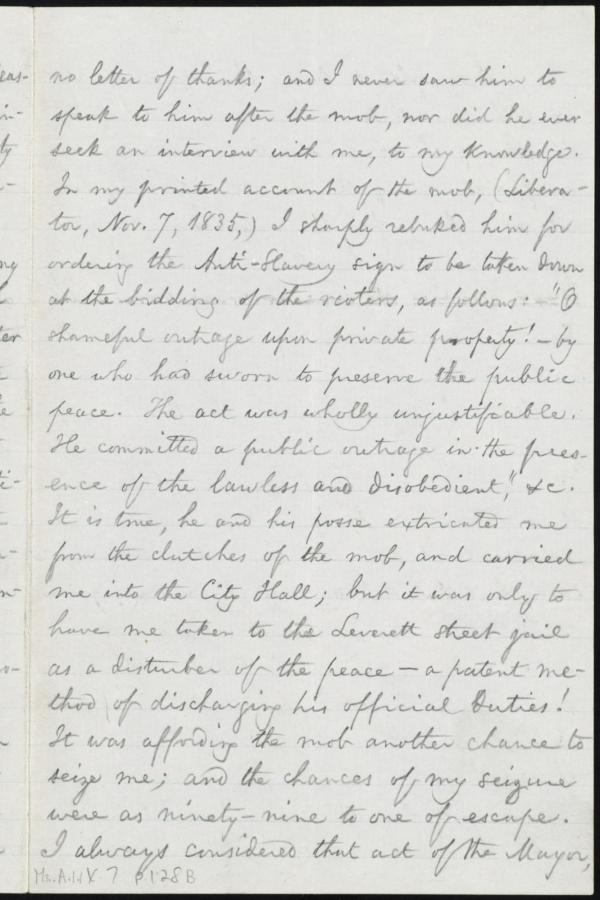 no letter of thanks; and I never saw him to
speak to him after the mob, nor did he ever
seek an interview with me, to my knowledge.
In my printed account of the mob, (Libera-
tor, Nov. 7, 1835,) I sharply rebuked him for
ordering the Anti-Slavery sign to be taken down
at the bidding of the rioters, as follows:—"O
shameful outrage upon private property!—by
one who had sworn to preserve the public
peace. The act was wholly unjustifiable.
He committed a public outrage in the pres-
ence of the lawless and disobedient," &c.
It is true, he and his posse extricated me
from the clutches of the mob, and carried
me into the City Hall; but it was only to
have me taken to the Leverett street jail
as a disturber of the peace — a patent me-
thod of discharging his official duties!
It was affording the mob another chance to
seize me; and the chances of my seizure
were as ninety-nine to one of escape.
I always considered that act of the Mayor,